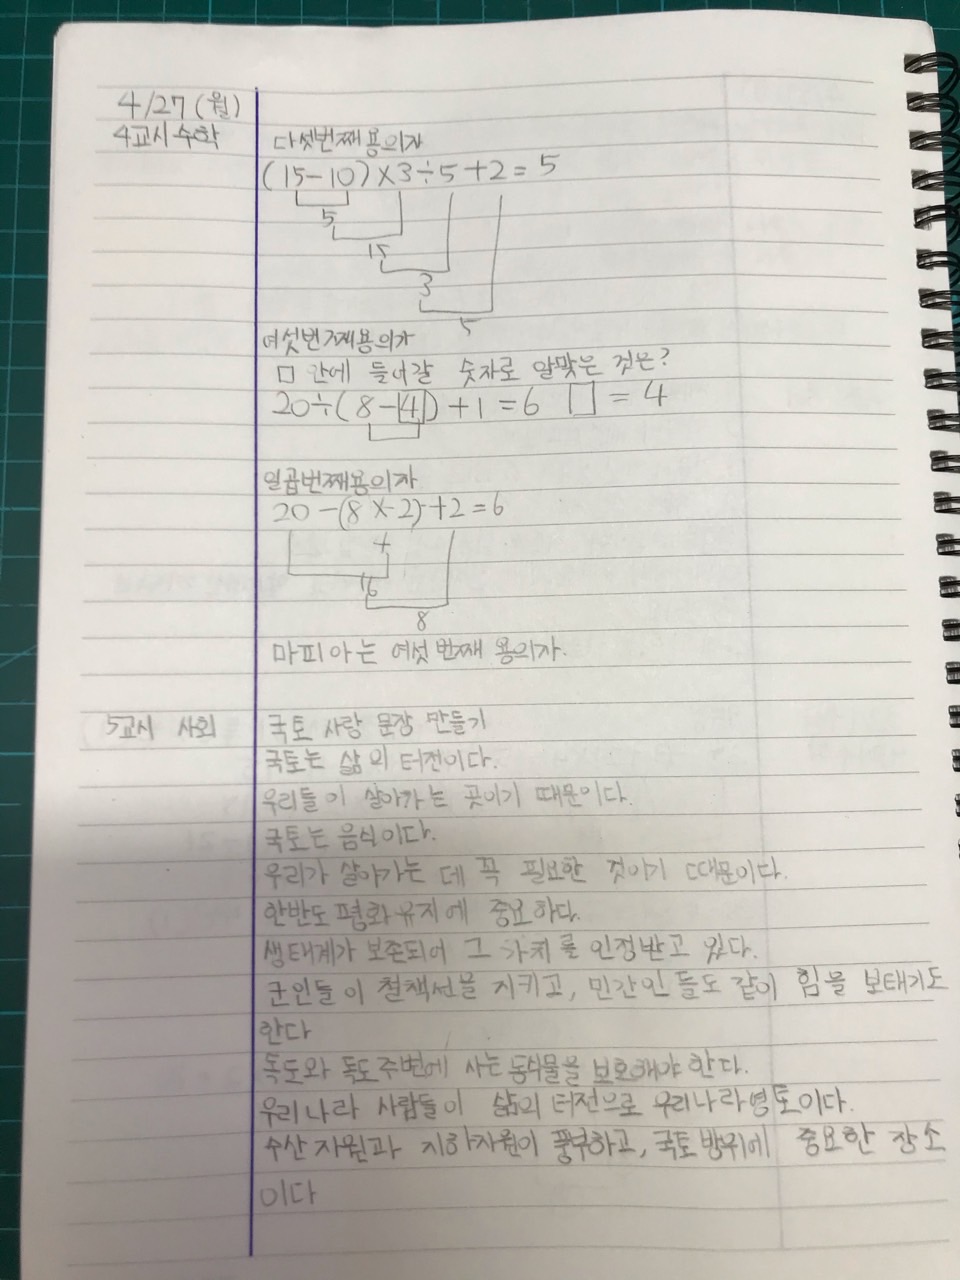 4/27(월)
4교시 수학 다섯번째용의자
(15-10)×3÷5+2=5
5
15
3
5
여섯번째용의자
□ 안에 들어갈 숫자로 알맞은 것은?
20÷(8-4)+1=6 □=4
일곱번째용의자
20-(8×2)+2=6
4
16
8
마피아는 여섯번째 용의자.
5교시 사회 국토 사랑 문장 만들기
국토는 삶의 터전이다.
우리들이 살아가는 곳이기 때문이다.
국토는 음식이다.
우리가 살아가는 데 꼭 필요한 것이기 때문이다.
한반도 평화유지에 중요하다.
생태계가 보존되어 그 가치를 인정받고 있다.
군인들이 철책선을 지키고, 민간인들도 같이 힘을 보태기도
한다
독도와 독도주변에 사는 동식물을 보호해야 한다.
우리나라 사람들이 삶의 터전으로 우리나라영토이다.
수산자원과 지하자원이 풍부하고, 국토방위에 중요한 장소
이다